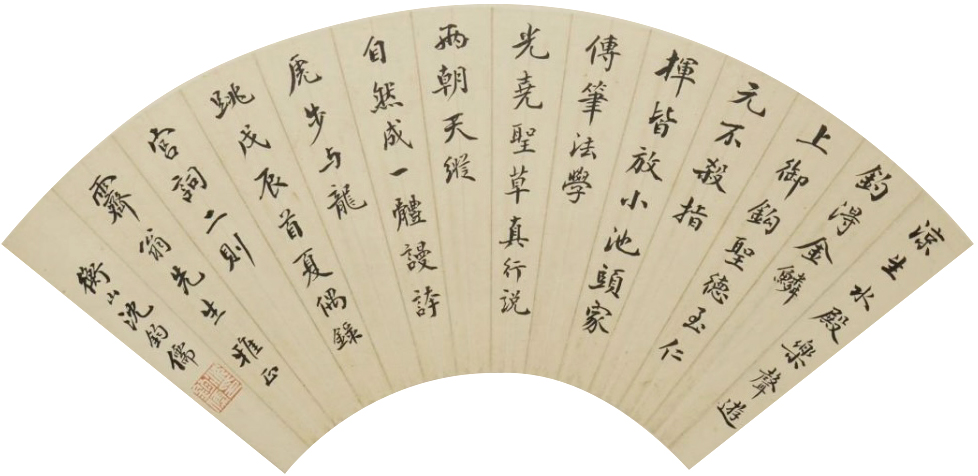 涼生水殿樂聲遊
釣淂金鱗
上御鈎聖德至仁
元不殺指
揮皆放小池頭家
傳筆法學
光堯聖草真行説
兩朝天縱
自然成一體謾誇
虎步与龍
跳戊辰首夏偶錄
宮詞二則
霽翁先生雅正
衡山沈鈞儒